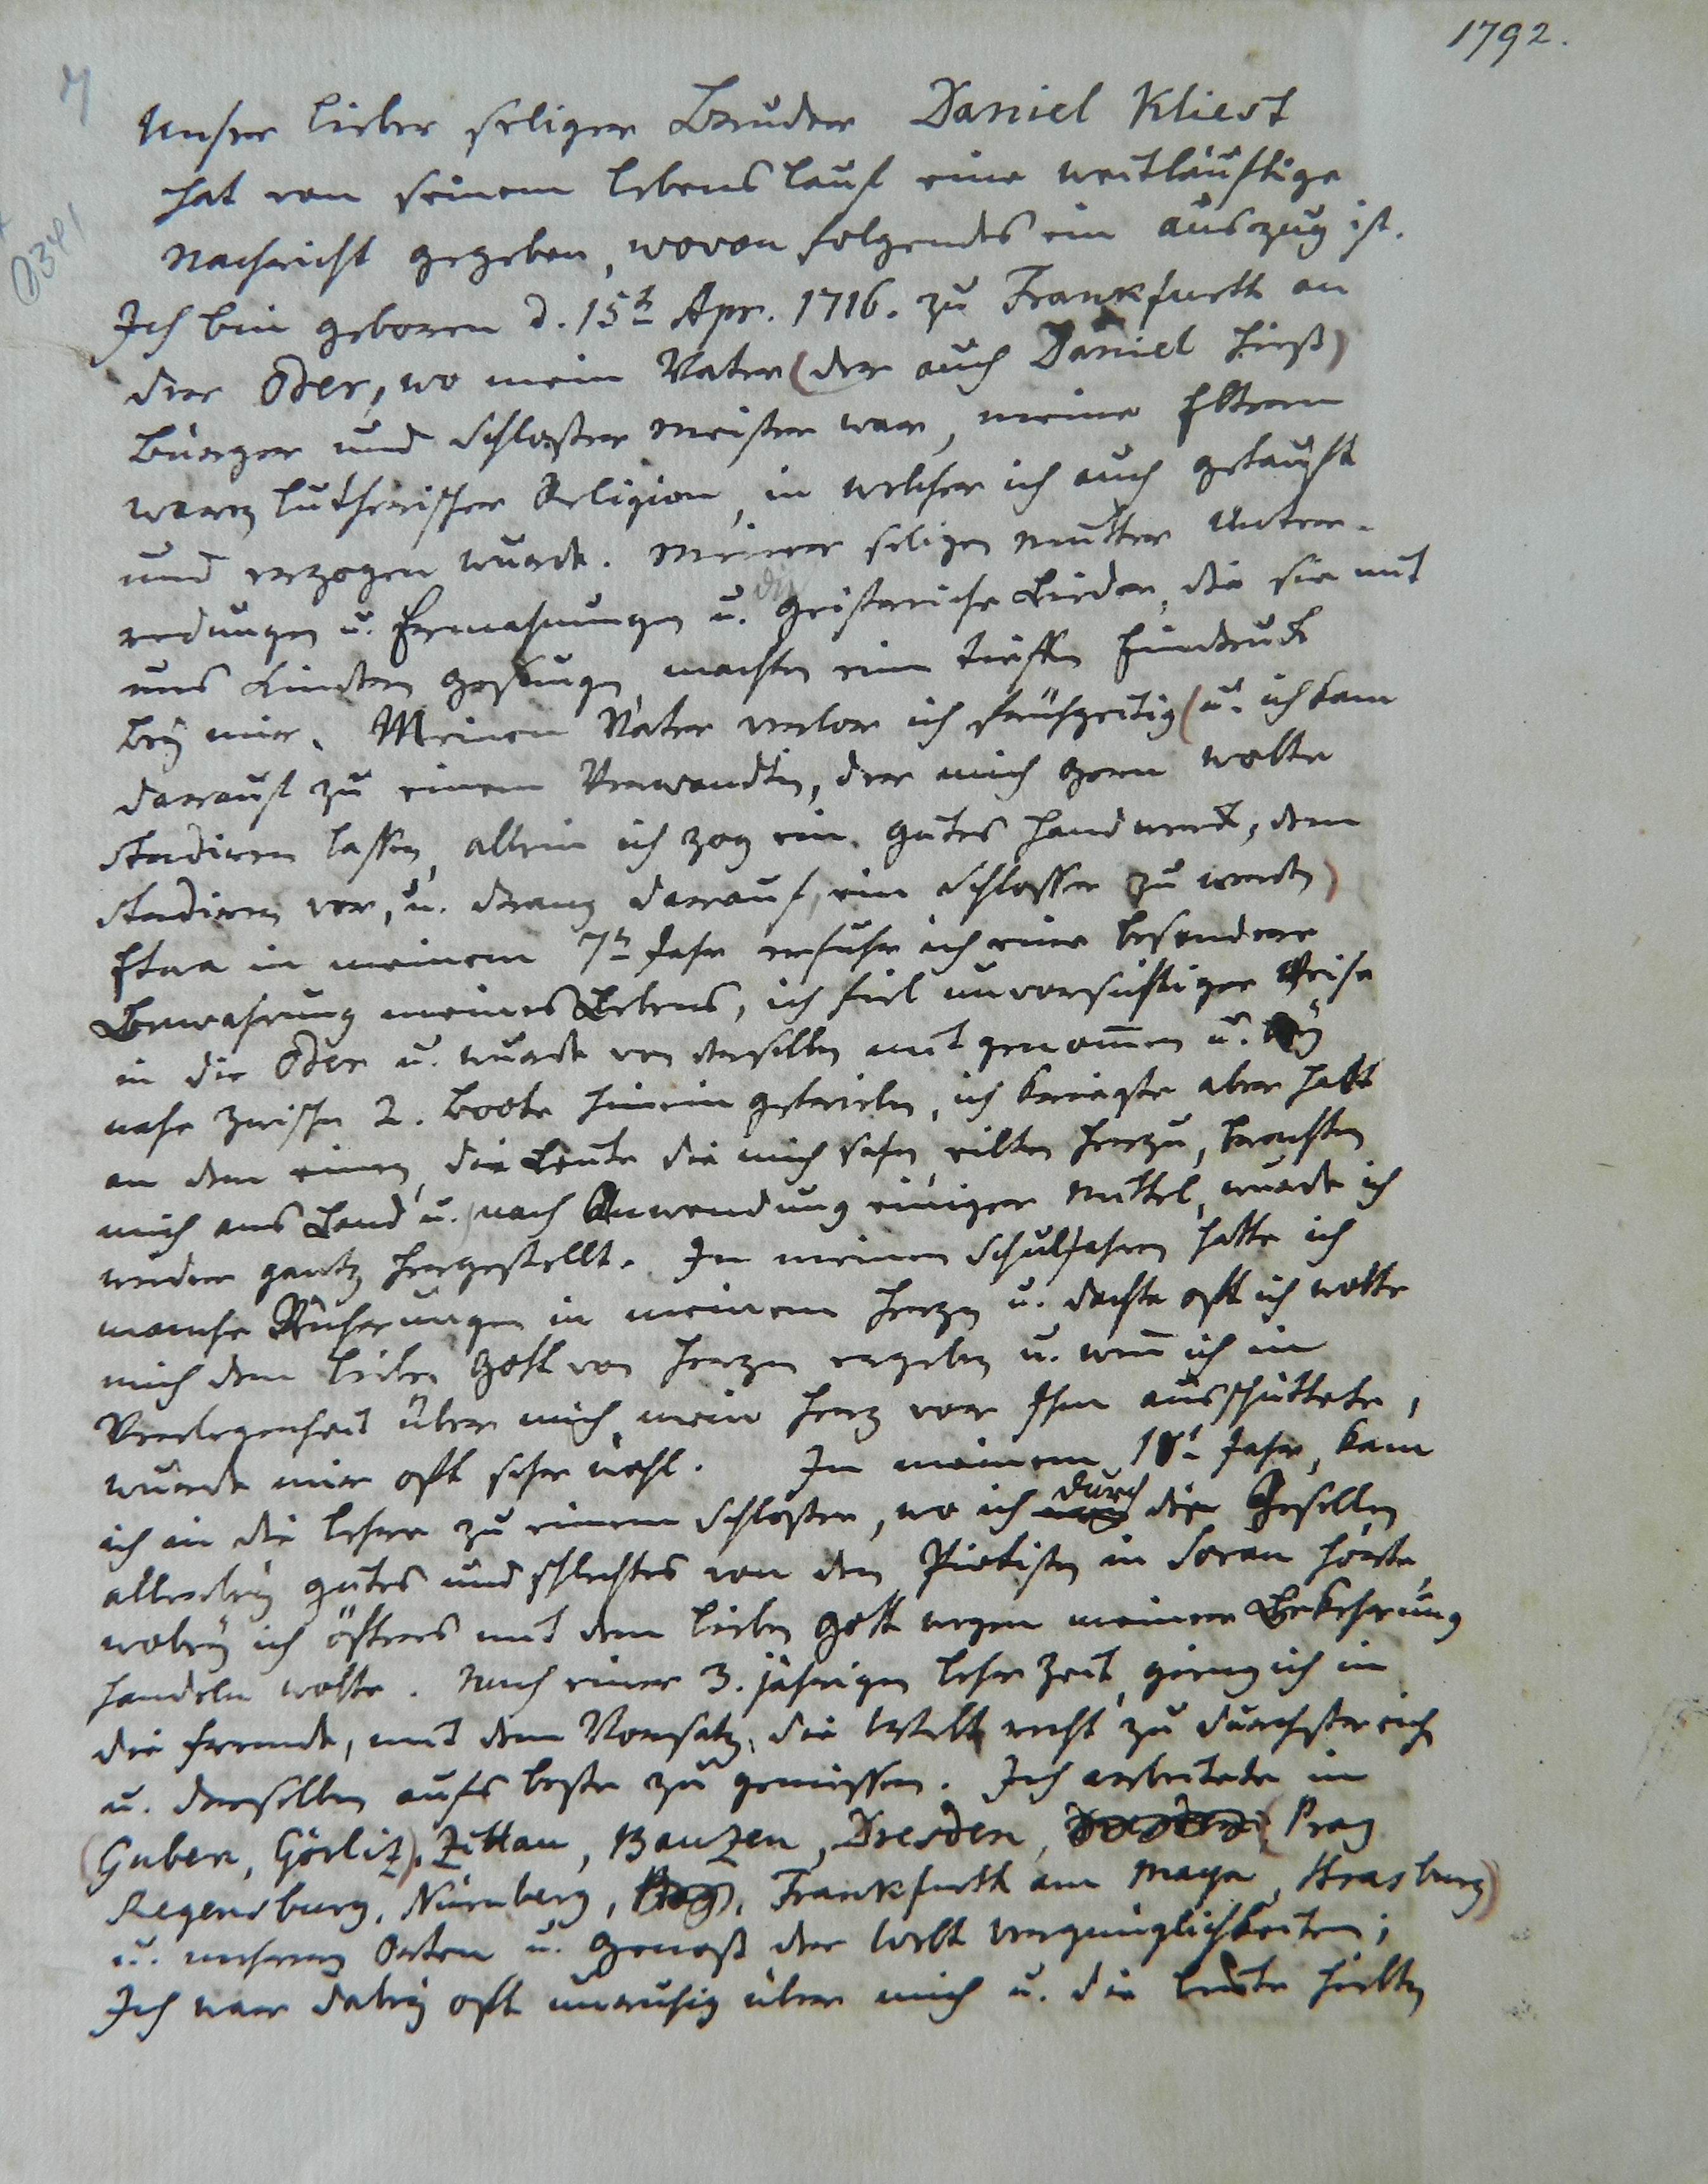 1792.
Unser lieber seliger Bruder Daniel Kliest
hat von seinem Lebens lauf eine weitläuftige
Nachricht gegeben, wovon folgendes ein Auszug ist.
Ich bin geboren d. 15t Apr. 1716. zu Frankfurth an
der Oder, wo mein Vater (der auch Daniel hieß)
Bürger und Schloßer Meister war, meine Eltern
waren Lutherischer Religion, in welcher ich auch getauft
und erzogen wurde. Meiner seligen Mutter Unter-
redungen u. Ermahnungen u. die Geistreiche Lieder, die sie mit
uns Kindern gesungen, machten ein tieffen Eindruck
bey mir. Meinen Vater verlor ich frühzeitig (u. ich kam
darauf zu einem Verwandten, der mich gern wolte
studiren lassen, allein ich zog ein gutes Handwerck, dem
studiren vor, u. drang darauf, ein Schlosser zu werden)
Etwa in meinem 7t Jahr erfuhr ich eine besondere
Bewahrung meines Lebens, ich fiel unvorsichtiger Weise
in die Oder u. wurde von derselben mit genom̅en u. bey
nahe zwischen 2. Boote hinein getrieben, ich kriegte aber halt
an dem einen, die Leute die mich sahen, eilten herzu, brachten
mich ans Land u. nach Anwendung einiger Mittel, wurde ich
wieder gantz hergestellt. In meinen Schuljahren hatte ich
manche Rührungen in meinem Herzen u. dachte oft ich wolte
mich dem lieben Gott von Herzen ergeben u. wen̅ ich in
Verlegenheit über mich, mein Herz vor Ihm ausschüttete,
wurde mir oft sehr wohl. In meinem 18t Jahr, kam
ich in die Lehre zu einem Schloßer, wo ich durch die Gesellen
allerley gutes und schlechtes von den Pietisten in Sorau hörte,
wobey ich öfters mit dem lieben Gott wegen meiner Bekehrung
handeln wolte. Nach einer 3. jährigen Lehr Zeit, gieng ich in
die Fremde, mit dem Vorsatz, die Welt recht zu durchstreich
u. derselben aufs beste zu geniessen. Ich arbeitete in
(Guben, Görlitz), Zittau, Bautzen, Dresden, (Prag
Regensburg, Nürnberg, Prag, Frankfurth am Mayn, Strasburg)
u. mehrern Orten u. genoß der Welt vergnüglichkeiten;
Ich war dabey oft unruhig über mich u. die Leute hielten